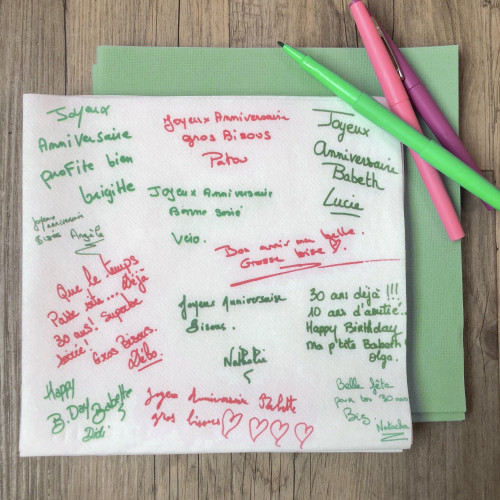 Joyeux
Anniversaire
profite bien
brigitte
Joyeux Anniversaire
gros Bisous
Patou
Joyeux
Anniversaire
Babeth
Lucie
Joyeux Anniversaire
Bonne soirée
Vero.
Joyeux anniversaire
Bises Angèle
Bon anniv ma belle.
Grosse bise
Que le temps
Passe vite... Déjà
30 ans! Superbe
soirée!
Gros Bisous.
Débo.
Joyeux Anniversaire
Bisous.
Nathalie
30 ans déjà !!!
10 ans d'amitié..
Happy Birthday
Ma p'tite Babeth
Olga.
Happy
B.Day Babette
Didi
Joyeux Anniversaire
gros bisous
Belle fête
pour tes 30 ans
Biz
Natacha